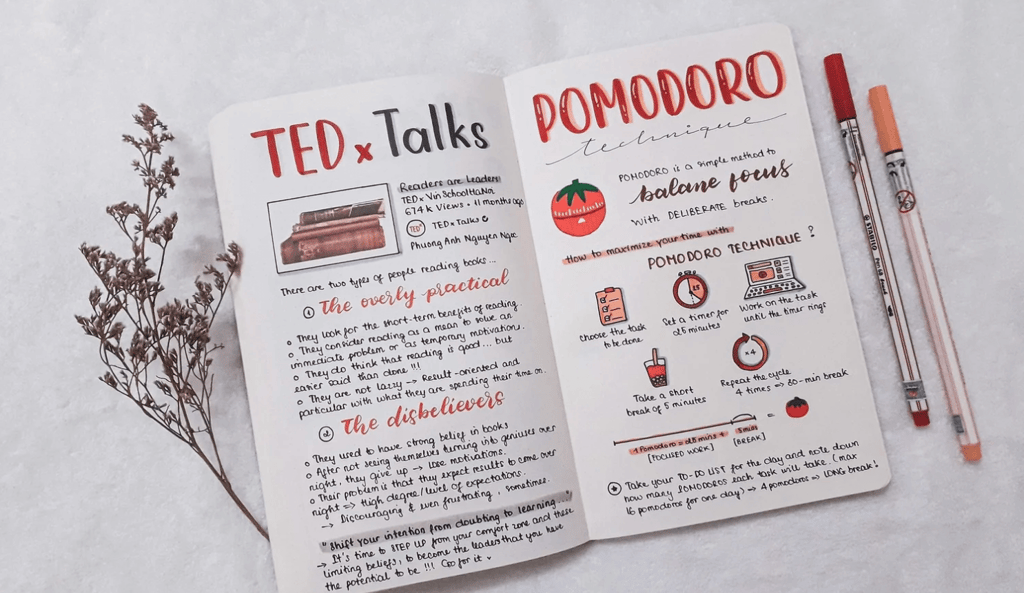 TEDx Talks
Readers are Leaders
TEDx VinSchoolHaNoi
674K Views • 11 months ago
TEDx TEDxTalks
Phuong Anh Nguyen Ngoc
There are two types of people reading books...
① The overly practical
o They look for the short-term benefits of reading.
o They consider reading as a mean to solve an
immediate problem or as temporary motivations.
o They do think that reading is good... but
easier said than done !!!
o They are not lazy → Result-oriented and
particular with what they are spending their time on.
② The disbelievers
o They used to have strong belief in books
o After not seeing themselves turning into geniuses over
night, they give up → lose motivations.
o Their problem is that they expect results to come over
night => High degree/level of expectations.
→ Discouraging & even frustrating, sometimes.
"Shift your intention from doubting to learning..."
→ It's time to STEP UP from your comfort zone and these
limiting beliefs, to become the leaders that you have
the potential to be !!! Go for it
POMODORO
technique
POMODORO is a simple method to
balane focus
With DELIBERATE breaks.
How to maximize your time with
POMODORO TECHNIQUE ?
25
choose the task
to be done
Set a timer for
25 minutes
Work on the task
until the timer rings
Take a short
break of 5 minutes
x4
Repeat the cycle
4 times => 30-min break
1 Pomodoro = 25 mins + 5 mins =
[FOCUSED WORK] [BREAK]
Take your TO-DO LIST for the day and note down
how many POMODOROS each task will take. (max
16 pomodoros for one day) => 4 pomodoros => LONG break!
STABILO